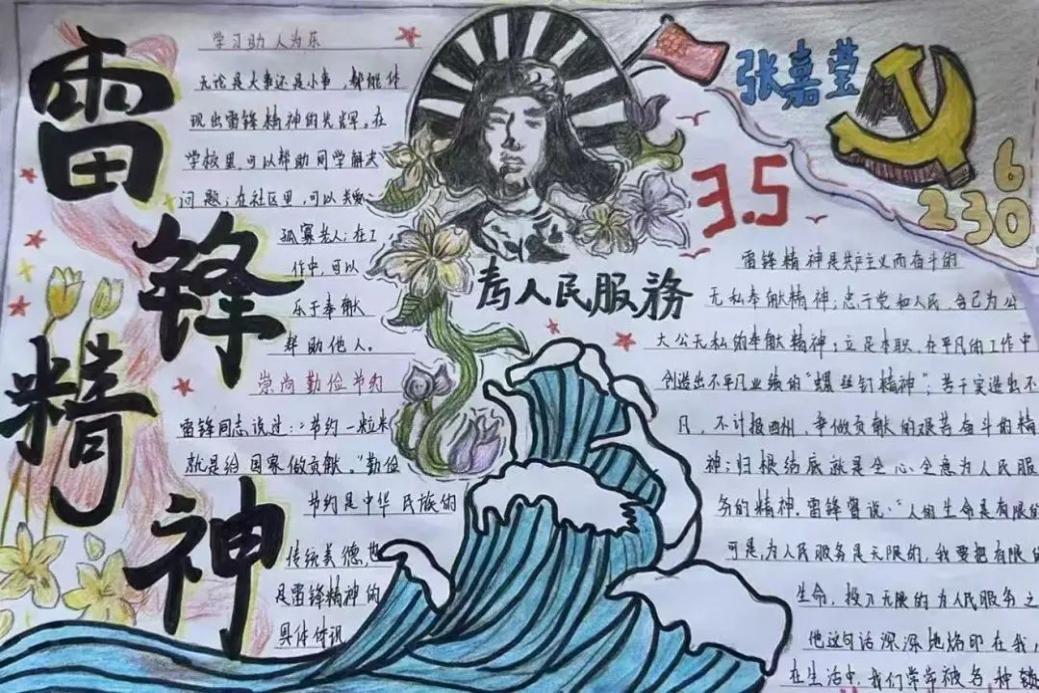 雷锋精神
学习助人为乐
无论是大事还是小事，都能体
现出雷锋精神的光辉。在
学校里，可以帮助同学解决
问题；在社区里，可以关爱
孤寡老人；在工
作中，可以
乐于奉献
帮助他人。
崇尚勤俭节约
雷锋同志说过：“节约一粒米
就是给国家做贡献。”勤俭
节约是中华民族的
传统美德，也
是雷锋精神的
具体体现
为人民服务
3.5
张嘉莹
6
230
雷锋精神是共产主义而奋斗的
无私奉献精神；忠于党和人民、舍己为公
大公无私的奉献精神；立足本职、在平凡的工作中
创造出不平凡业绩的“螺丝钉精神”；苦干实造出不
凡，不计报酬，争做贡献的艰苦奋斗的精
神；归根结底就是全心全意为人民服
务的精神。雷锋曾说：“人的生命是有限的
可是，为人民服务是无限的，我要把有限的
生命，投入无限的为人民服务之
他这句话深深地烙印在我，
在生活中，我们常常被各种